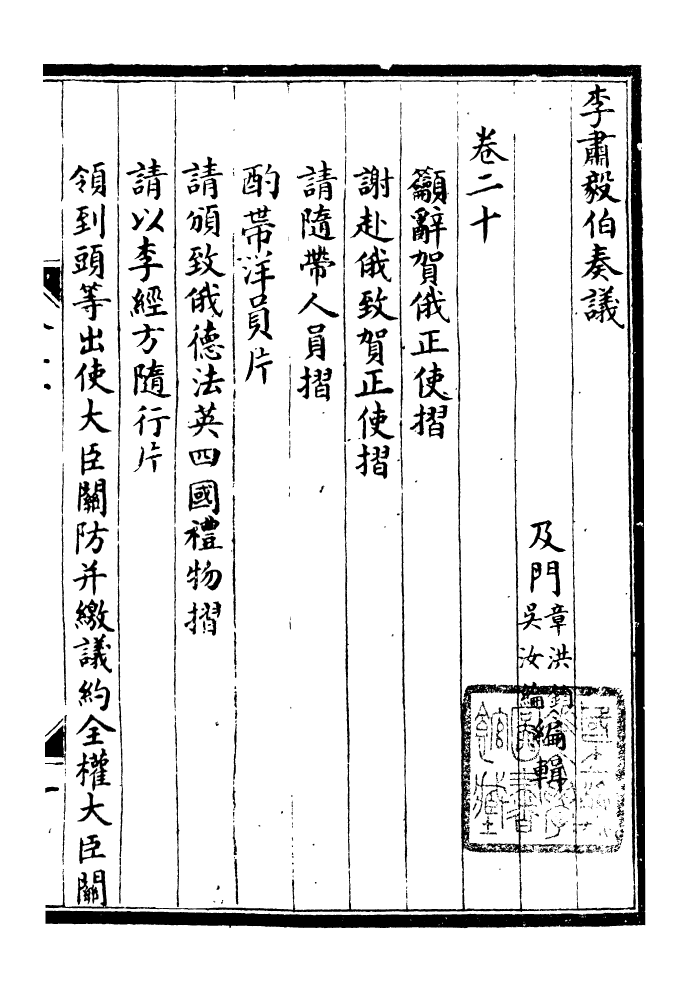 李肅毅伯奏議
及門章洪鈞吳汝綸編輯
卷二十
籲辭賀俄正使摺
謝赴俄致賀正使摺
請隨帶人員摺
酌帶洋員片
請頒致俄德法英四國禮物摺
請以李經方隨行片
領到頭等出使大臣關防并繳議約全權大臣關